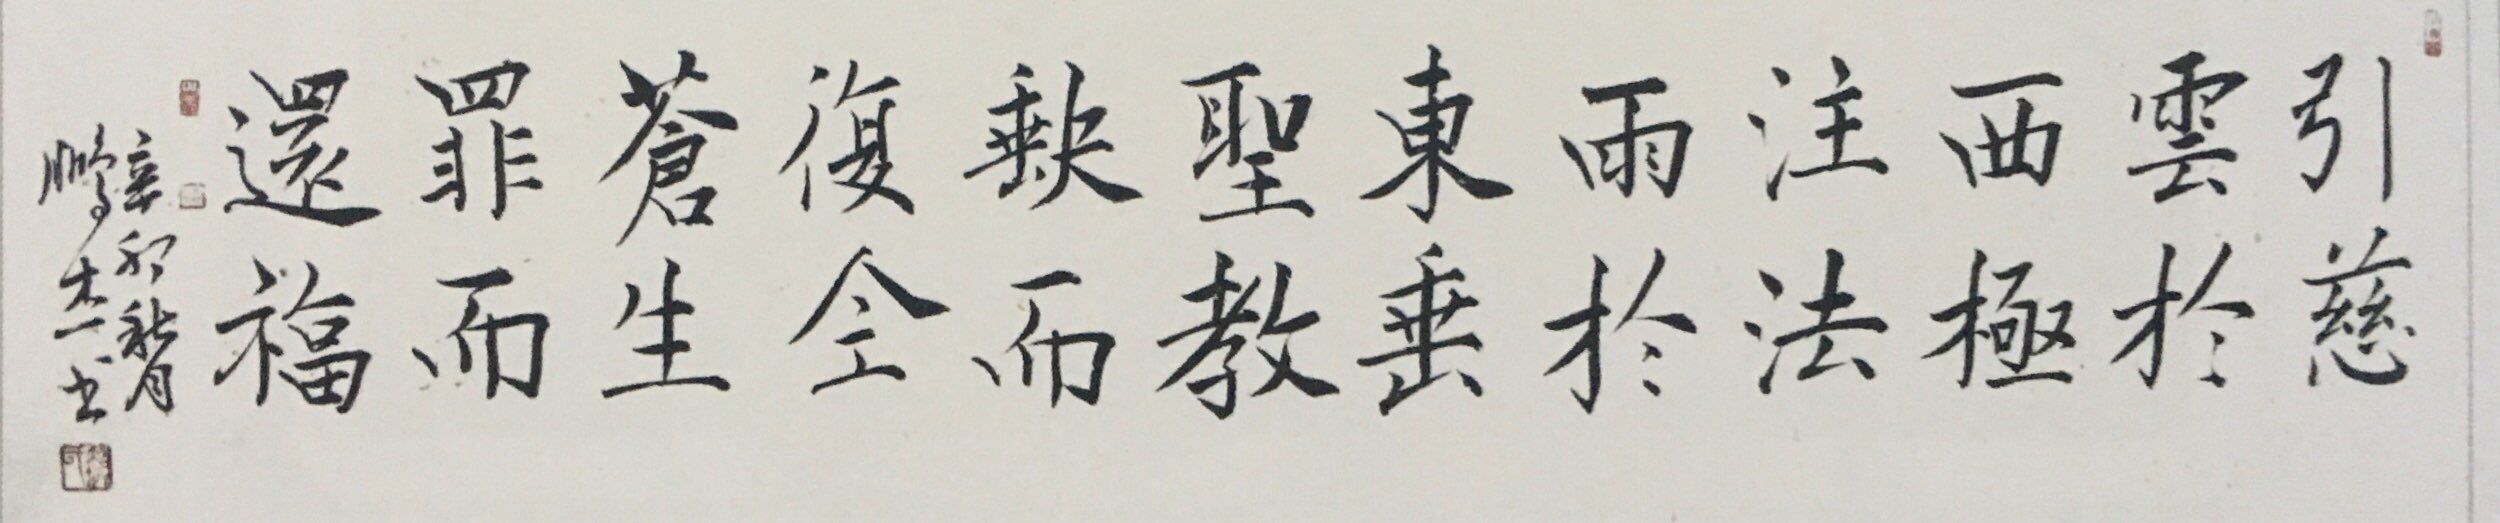 引慈
雲於
西極
注法
雨於
東垂
聖教
缺而
復全
蒼生
罪而
還福
辛卯
鵬杰书